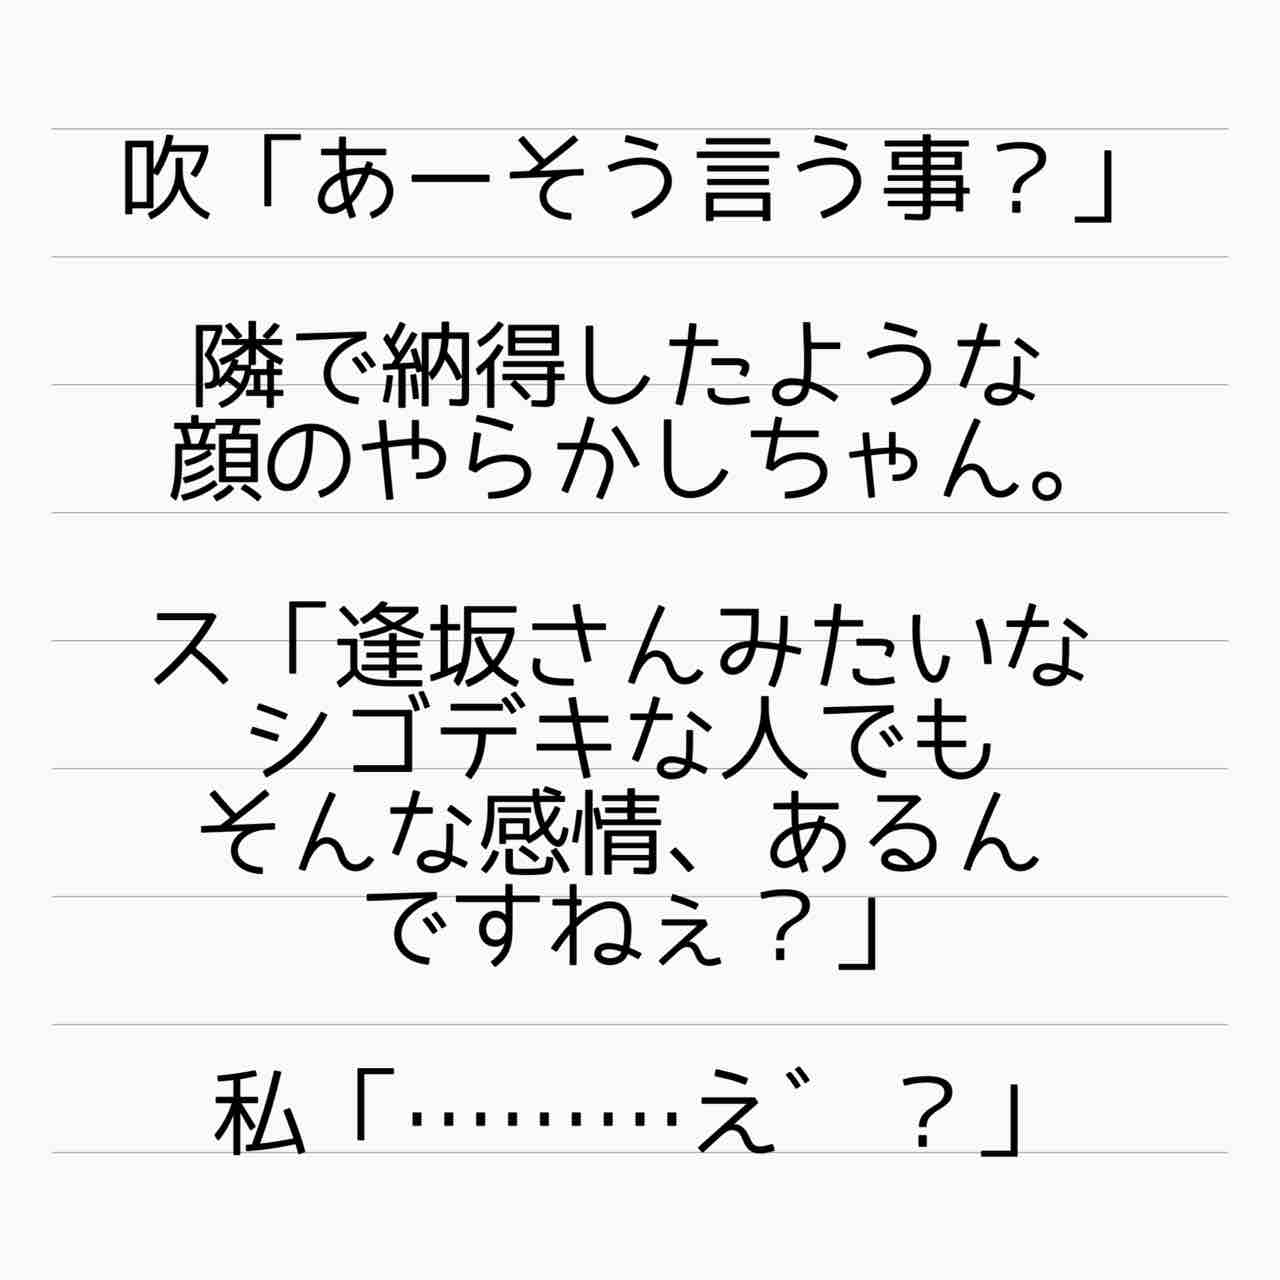 吹「あーそう言う事？」
隣で納得したような
顔のやらかしちゃん。
ス「逢坂さんみたいな
シゴデキな人でも
そんな感情、あるん
ですねぇ？」
私「………え゛ ？」